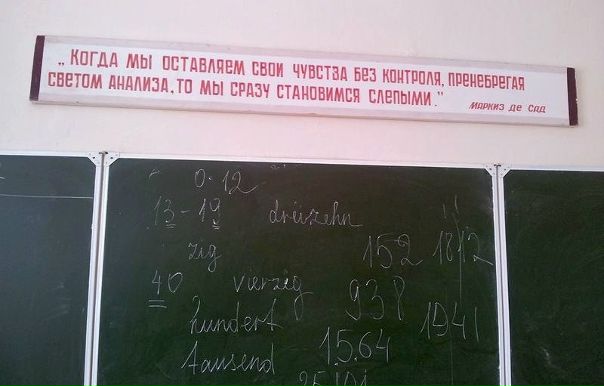 „КОГДА МЫ ОСТАВЛЯЕМ СВОИ ЧУВСТВА БЕЗ КОНТРОЛЯ, ПРЕНЕБРЕГАЯ
СВЕТОМ АНАЛИЗА, ТО МЫ СРАЗУ СТАНОВИМСЯ СЛЕПЫМИ."
МАРКИЗ ДЕ САД
0-12
13-19 dreizehn
zig 152 1812
40 vierzig 938
hundert 1941
tausend 15.64